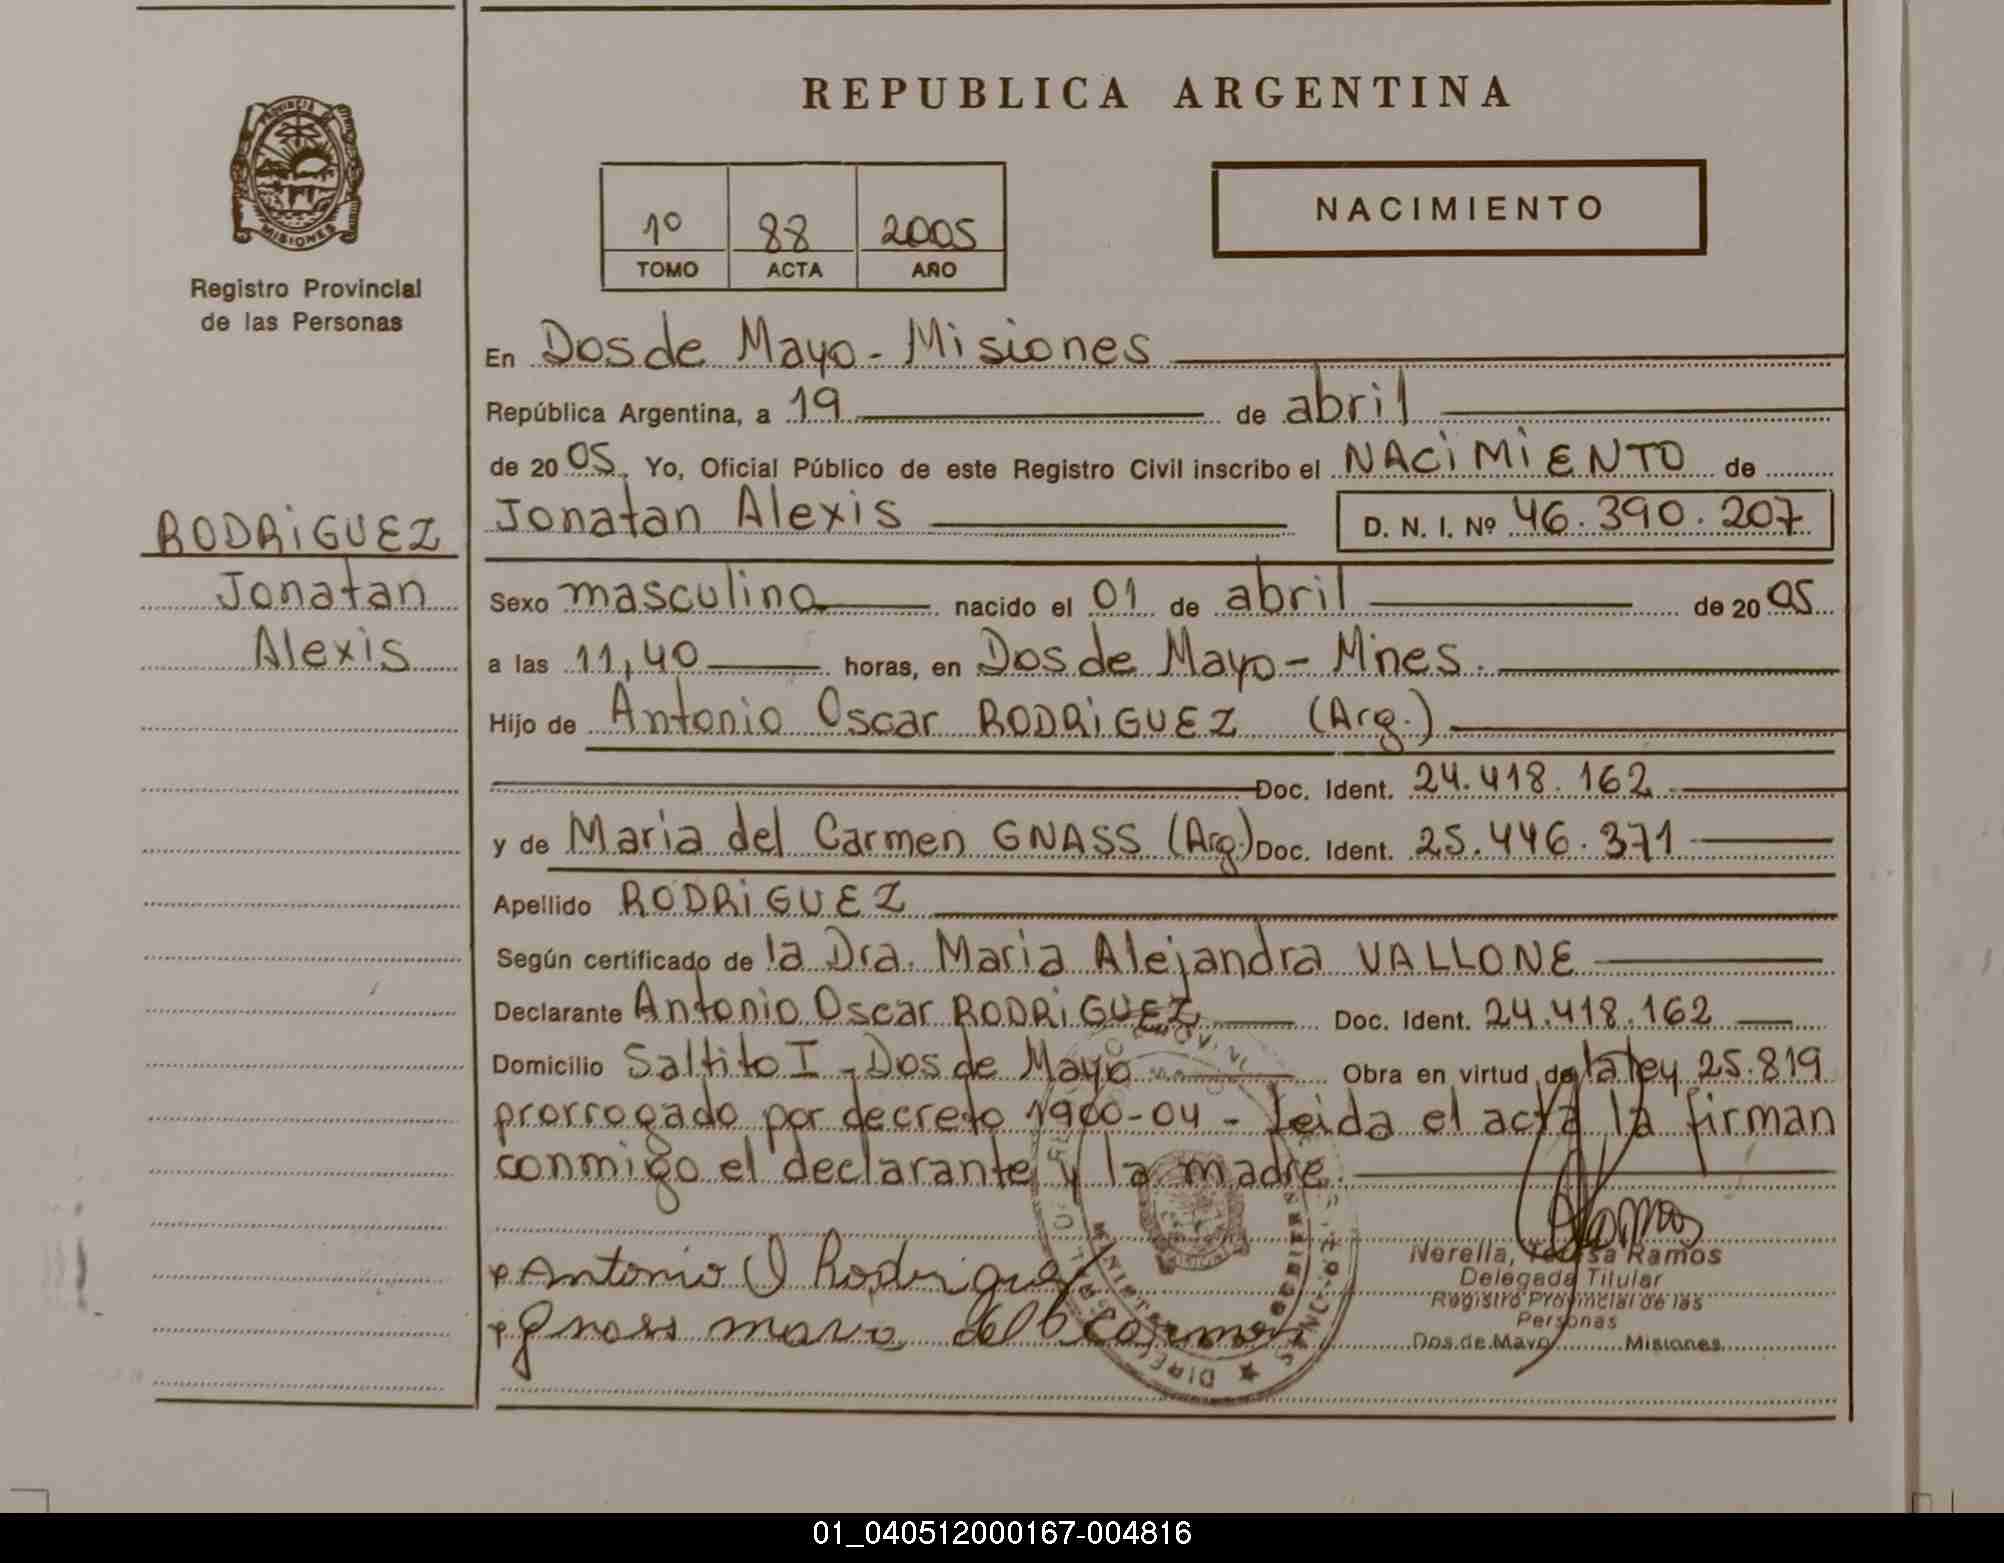 REPUBLICA ARGENTINA
PROVINCIA
MISIONES
Registro Provincial
de las Personas
1º 88 2005
TOMO ACTA AÑO
NACIMIENTO
En Dos de Mayo - Misiones
República Argentina, a 19 de abril
de 2005, Yo, Oficial Público de este Registro Civil inscribo el NACIMIENTO de
Jonatan Alexis D. N. I. Nº 46.390.207
RODRIGUEZ
Jonatan
Alexis
Sexo masculino nacido el 01 de abril de 2005
a las 11,40 horas, en Dos de Mayo - Mnes.
Hijo de Antonio Oscar RODRIGUEZ (Arg.)
Doc. Ident. 24.418.162
y de Maria del Carmen GNASS (Arg.) Doc. Ident. 25.446.371
Apellido RODRIGUEZ
Según certificado de la Dra. Maria Alejandra VALLONE
Declarante Antonio Oscar RODRIGUEZ Doc. Ident. 24.418.162
Domicilio Saltito I - Dos de Mayo Obra en virtud de la ley 25.819
prorrogado por decreto 1900-04 - Leida el acta la firman
conmigo el declarante y la madre.
Antonio O Rodriguez
Gnass maria del Carmen
Ramos
Nerella, Teresa Ramos
Delegada Titular
Registro Provincial de las
Personas
Dos de Mayo Misiones
01_040512000167-004816